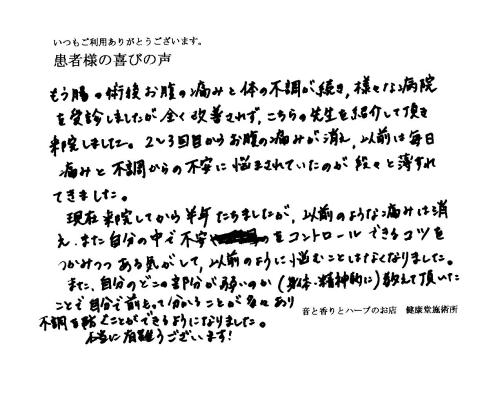 いつもご利用ありがとうございます。
患者様の喜びの声
もう腸の術後お腹の痛みと体の不調が続き、様々な病院
を受診しましたが全く改善されず、こちらの先生を紹介して頂き
来院しました。2〜3回目からお腹の痛みが消え、以前は毎日
痛みと不調からの不安に悩まされていたのが段々と薄れ
てきました。
現在来院してから半年たちましたが、以前のような痛みは消
え、また自分の中で不安をコントロールできるコツを
つかみつつある気がして、以前のように悩むことはなくなりました。
また、自分のどこの部分が弱いのか(身体・精神的に)教えて頂いた
ことで自分で前もって分かることが多々あり
不調を防ぐことができるようになりました。
本当に有難うございます!
音と香りとハーブのお店 健康堂施術所